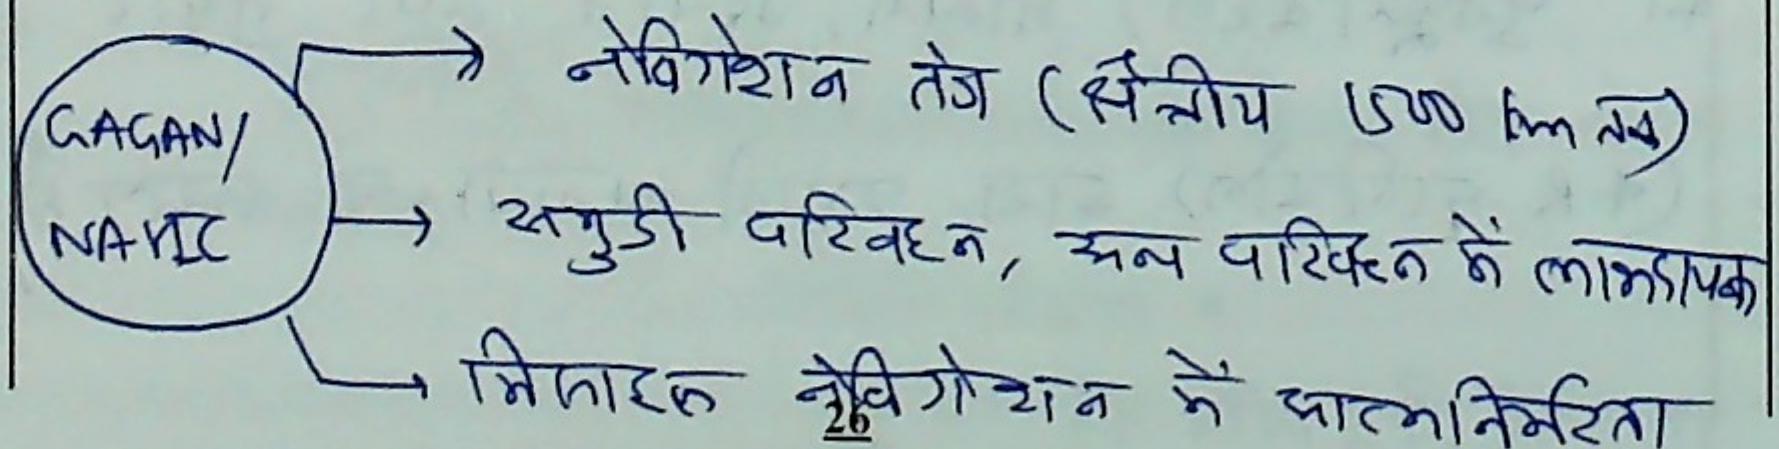 GAGAN/
NAVIC
→ नेविगेशन तंत्र (क्षेत्रीय 1500 km तक)
→ समुद्री परिवहन, अन्य परिवहन में लाभदायक
→ मिसाइल नेविगेशन में आत्मनिर्भरता
26